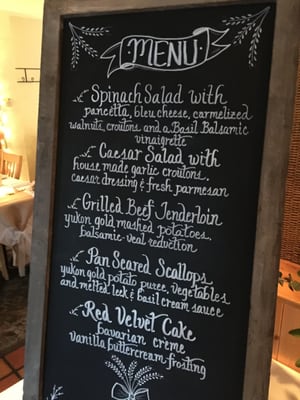 MENU.
Spinach Salad with
pancetta, bleu cheese, carmelized
walnuts, croutons and a Basil Balsamic
vinaigrette
Caesar Salad with
house made garlic croutons,
caesar dressing & fresh parmesan
Grilled Beef Tenderloin
yukon gold mashed potatoes,
balsamic-veal reduction
Pan Seared Scallops
yukon gold potato puree, vegetables
and melted leek & basil cream sauce
Red Velvet Cake
bavarian crème
vanilla buttercream frosting